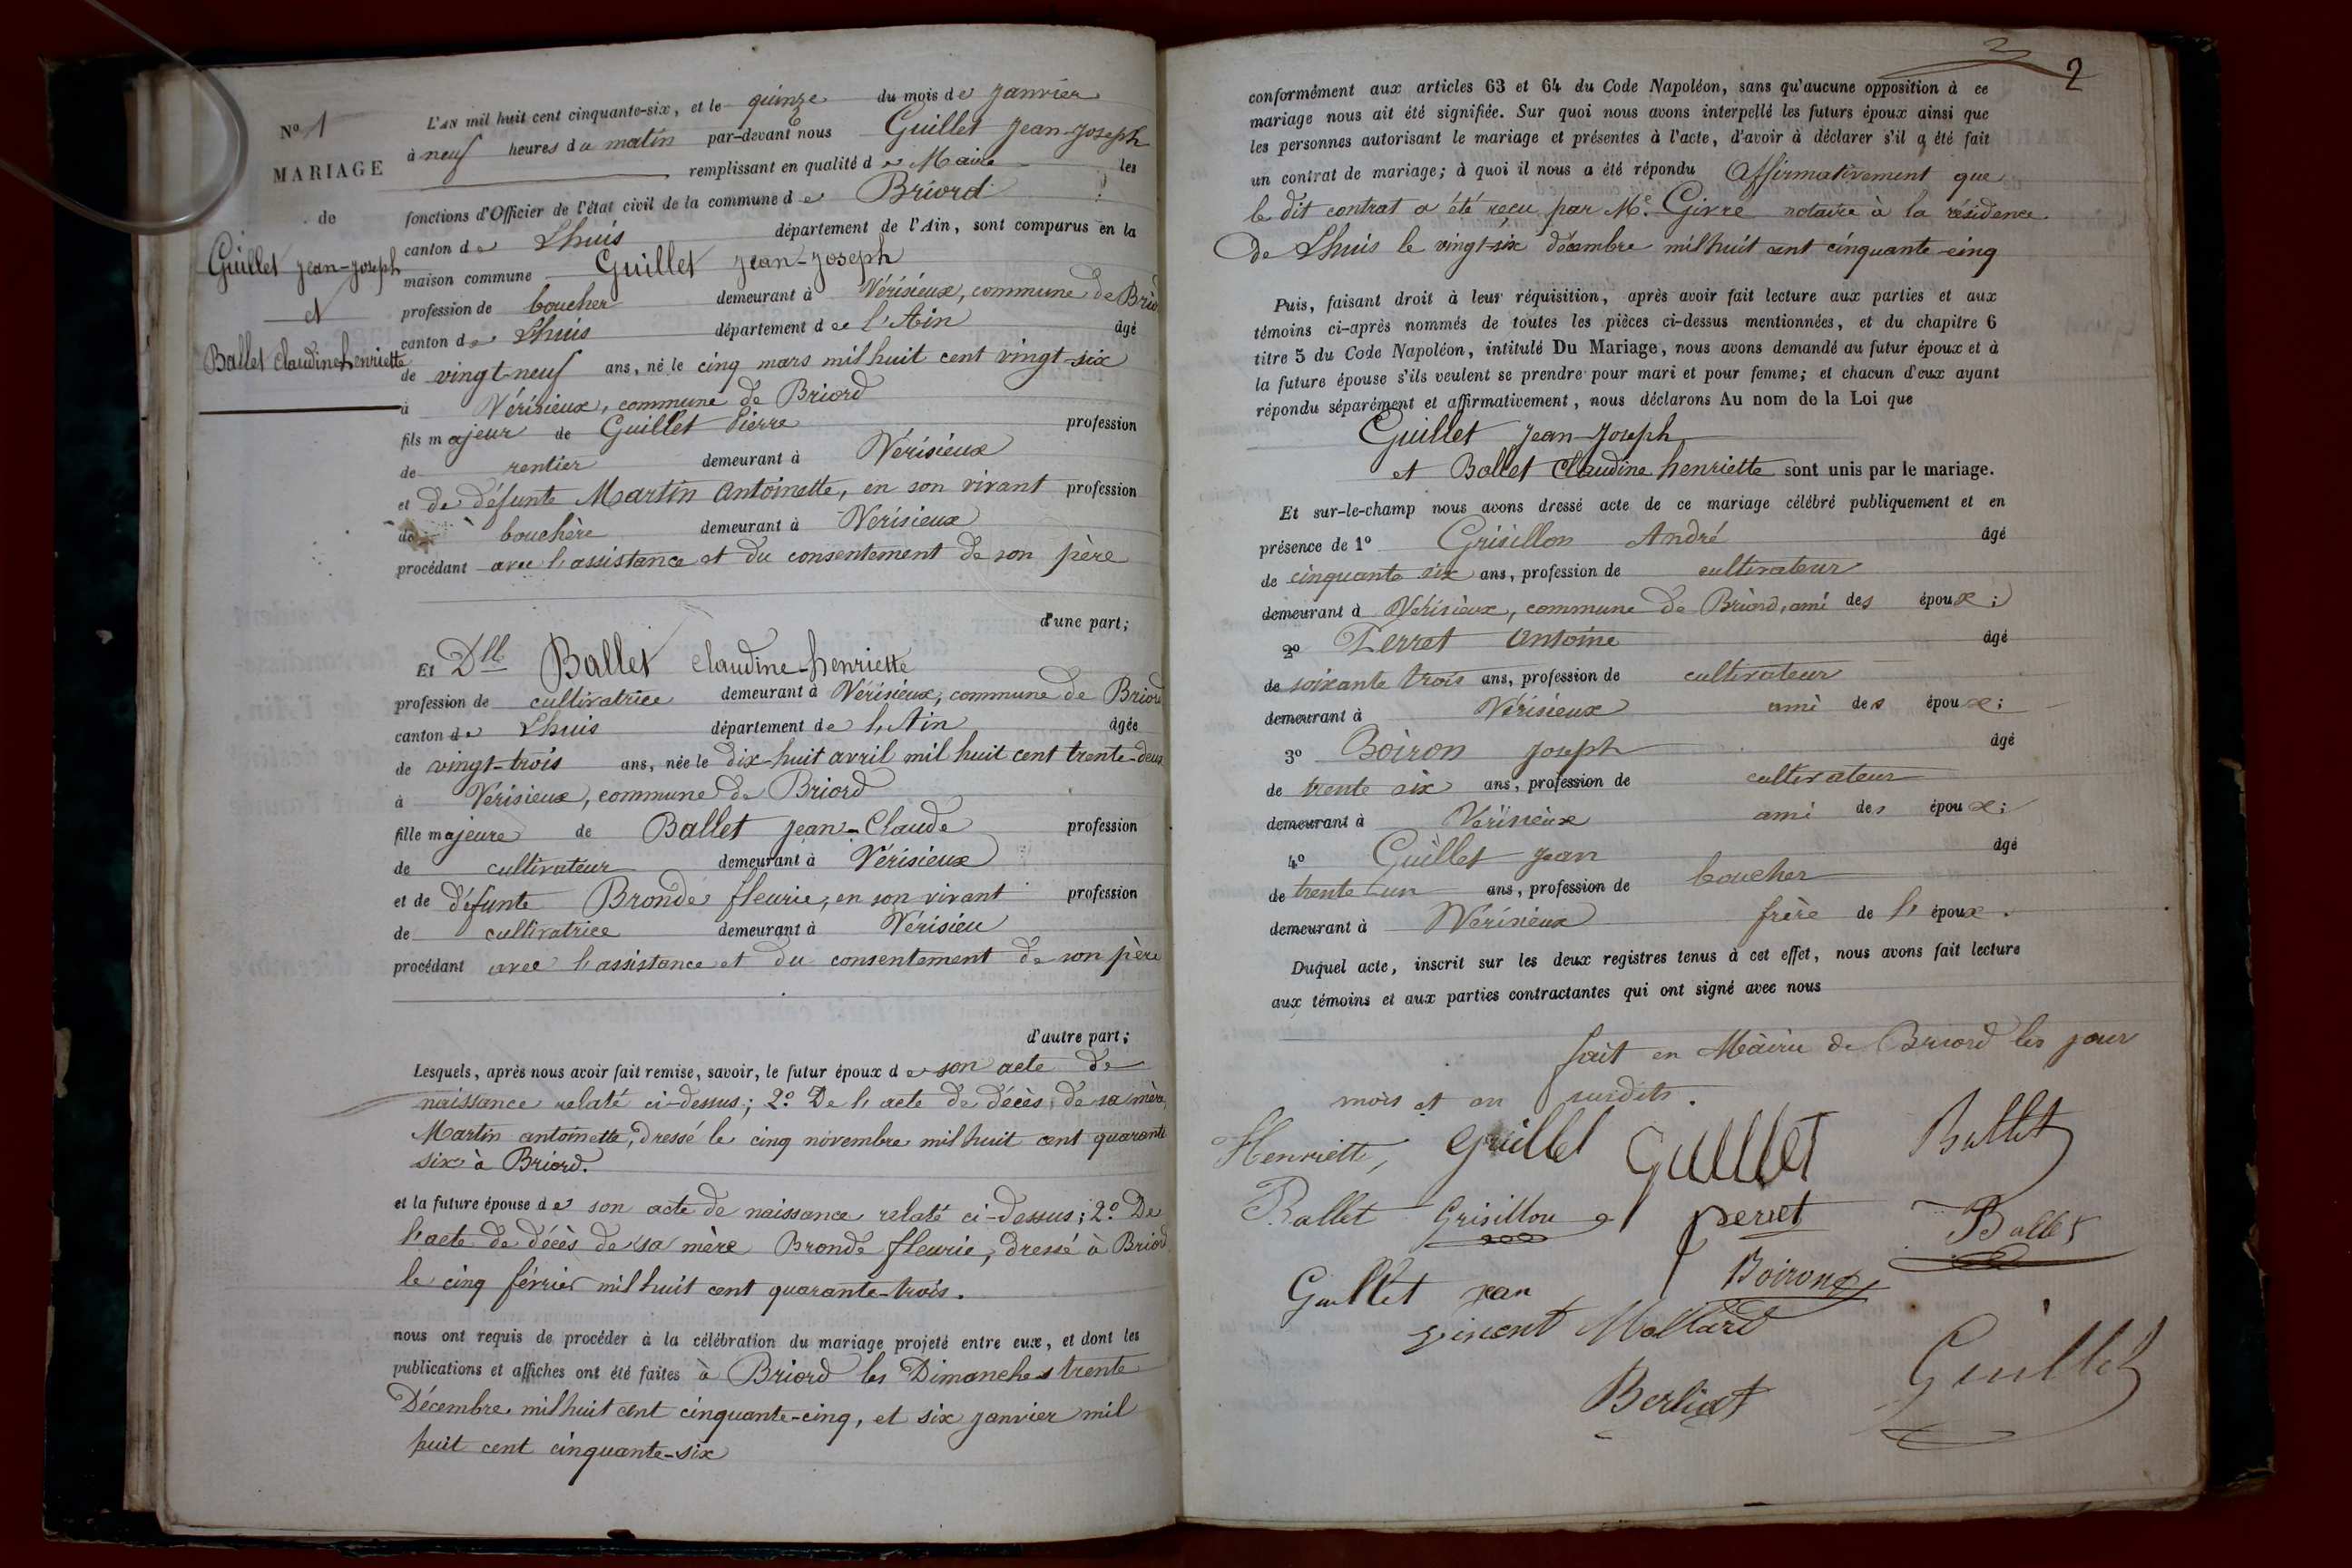 Nº 1
MARIAGE
de
Guillet Jean-Joseph
et
Ballet Claudine henriette
L'AN mil huit cent cinquante-six, et le quinze du mois de Janvier
à neuf heures du matin par-devant nous Guillet Jean-Joseph
remplissant en qualité de Maire les
fonctions d'Officier de l'état civil de la commune de Briord
canton de Lhuis département de l'Ain, sont comparus en la
maison commune Guillet Jean-Joseph
profession de boucher demeurant à Vérisieux, commune de Briord
canton de Lhuis département de l'Ain âgé
de vingt-neuf ans, né le cinq mars mil huit cent vingt-six
à Vérisieux, commune de Briord
fils majeur de Guillet Pierre profession
de rentier demeurant à Vérisieux
et de défunte Martin Antoinette, en son vivant profession
de bouchère demeurant à Verisieux
procédant avec l'assistance et du consentement de son père
d'une part;
Et Dlle Ballet Claudine-henriette
profession de cultivatrice demeurant à Vérisieux, commune de Briord
canton de Lhuis département de l'Ain âgée
de vingt-trois ans, née le dix-huit avril mil huit cent trente-deux
à Vérisieux, commune de Briord
fille majeure de Ballet Jean-Claude profession
de cultivateur demeurant à Vérisieux
et de défunte Bronde fleurie, en son vivant profession
de cultivatrice demeurant à Vérisieu
procédant avec l'assistance et du consentement de son père
d'autre part;
Lesquels, après nous avoir fait remise, savoir, le futur époux de son acte de
naissance relaté ci-dessus; 2º De l'acte de décès, de sa mère,
Martin antoinette, dressé le cinq novembre mil huit cent quarante
six à Briord.
et la future épouse de son acte de naissance relaté ci-dessus; 2º De
l'acte de décès de sa mère Bronde fleurie, dressé à Briord
le cinq février mil huit cent quarante-trois.
nous ont requis de procéder à la célébration du mariage projeté entre eux, et dont les
publications et affiches ont été faites à Briord les Dimanches trente
Décembre mil huit cent cinquante-cinq, et six janvier mil
huit cent cinquante-six
2
conformément aux articles 63 et 64 du Code Napoléon, sans qu'aucune opposition à ce
mariage nous ait été signifiée. Sur quoi nous avons interpellé les futurs époux ainsi que
les personnes autorisant le mariage et présentes à l'acte, d'avoir à déclarer s'il a été fait
un contrat de mariage; à quoi il nous a été répondu Affirmativement que
le dit contrat a été reçu par Me. Givre notaire à la résidence
de Lhuis le vingt-six décembre mil huit cent cinquante-cinq
Puis, faisant droit à leur réquisition, après avoir fait lecture aux parties et aux
témoins ci-après nommés de toutes les pièces ci-dessus mentionnées, et du chapitre 6
titre 5 du Code Napoléon, intitulé Du Mariage, nous avons demandé au futur époux et à
la future épouse s'ils veulent se prendre pour mari et pour femme; et chacun d'eux ayant
répondu séparément et affirmativement, nous déclarons Au nom de la Loi que
Guillet Jean-Joseph
et Ballet Claudine henriette sont unis par le mariage.
Et sur-le-champ nous avons dressé acte de ce mariage célébré publiquement et en
présence de 1º Grisillon André âgé
de cinquante six ans, profession de cultivateur
demeurant à Vérisieux, commune de Briord, ami des époux;
2º Perret Antoine âgé
de soixante trois ans, profession de cultivateur
demeurant à Vérisieux ami des époux;
3º Boiron Joseph âgé
de trente six ans, profession de cultivateur
demeurant à Vérisieux ami des époux;
4º Guillet Jean âgé
de trente-un ans, profession de boucher
demeurant à Vérisieux frère de l'époux.
Duquel acte, inscrit sur les deux registres tenus à cet effet, nous avons fait lecture
aux témoins et aux parties contractantes qui ont signé avec nous
fait en Mairie de Briord les jour
mois et an susdits.
Henriette, Guillet Guillet Ballet
Ballet Grisillon perret Ballet
Guillet Jean Boiron
Vincent Mollard
Berliat Guillet